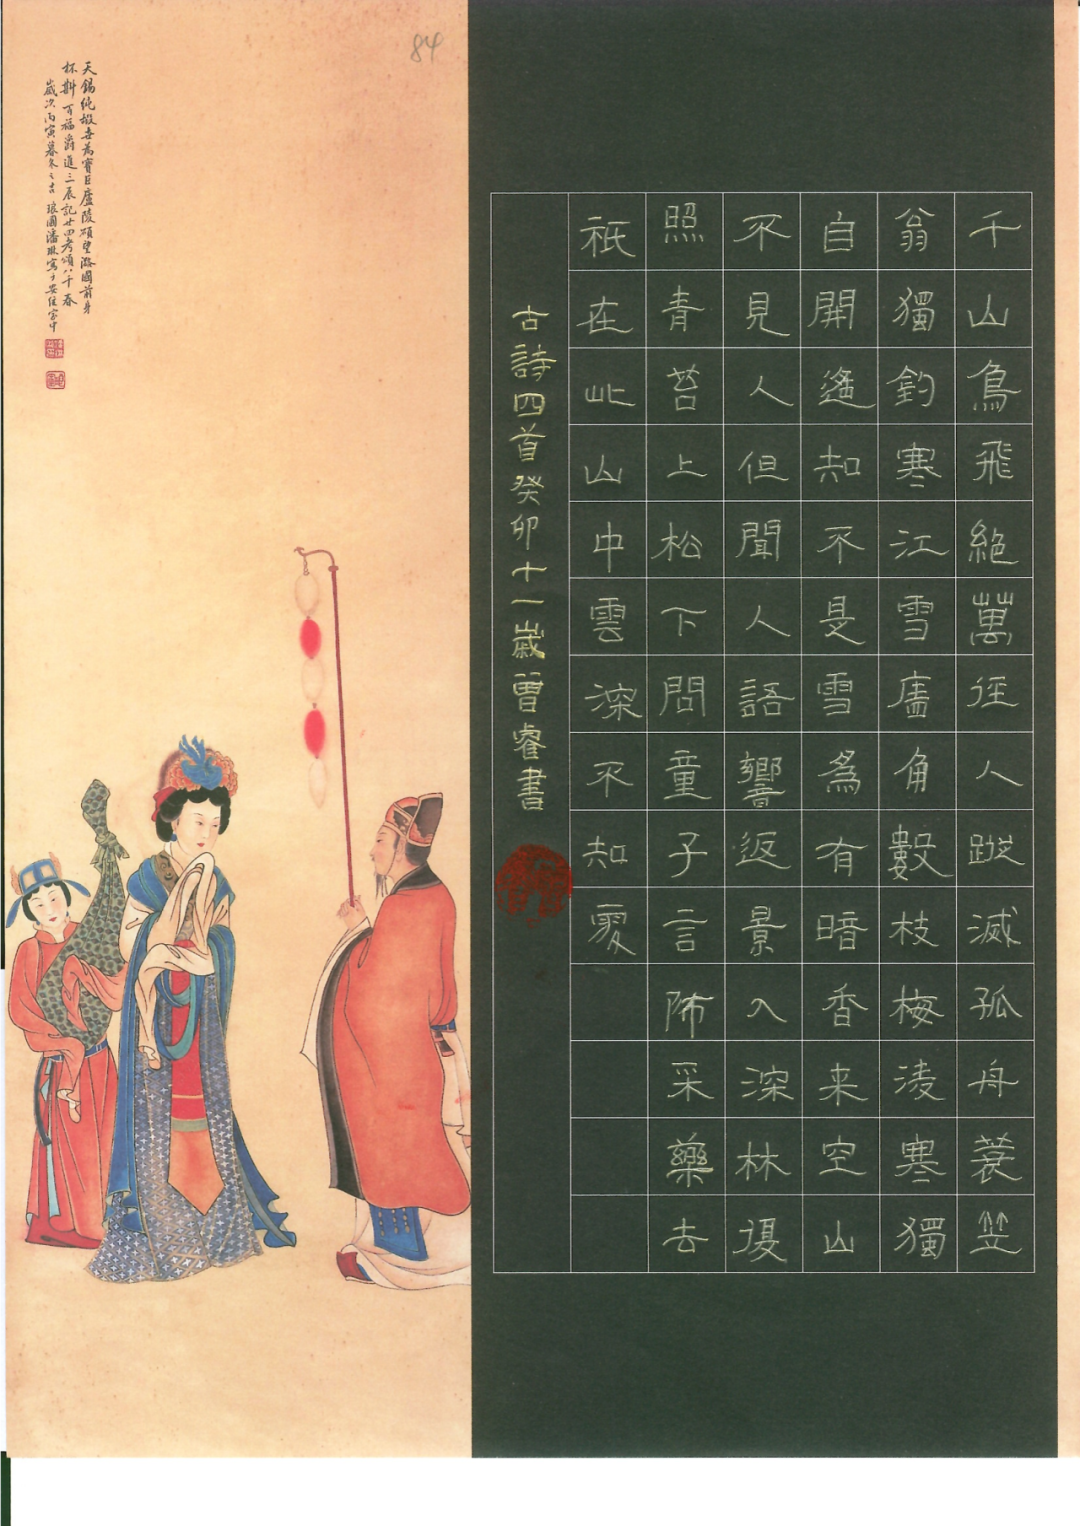 84
千山鳥飛絶萬徑人蹤滅孤舟蓑笠
翁獨釣寒江雪廧角數枝梅凌寒獨
自開遙知不是雪為有暗香来空山
不見人但聞人語響返景入深林復
照青苔上松下問童子言師采藥去
祇在此山中雲深不知處
古詩四首癸卯十一歲曾睿書
天錫純嘏世為寶臣廬陵碩望潞國前身
杯斟百福爵進三辰記廿四考頌八千春
歲次丙寅暮冬之吉 琅圃潘振寫于安住室中